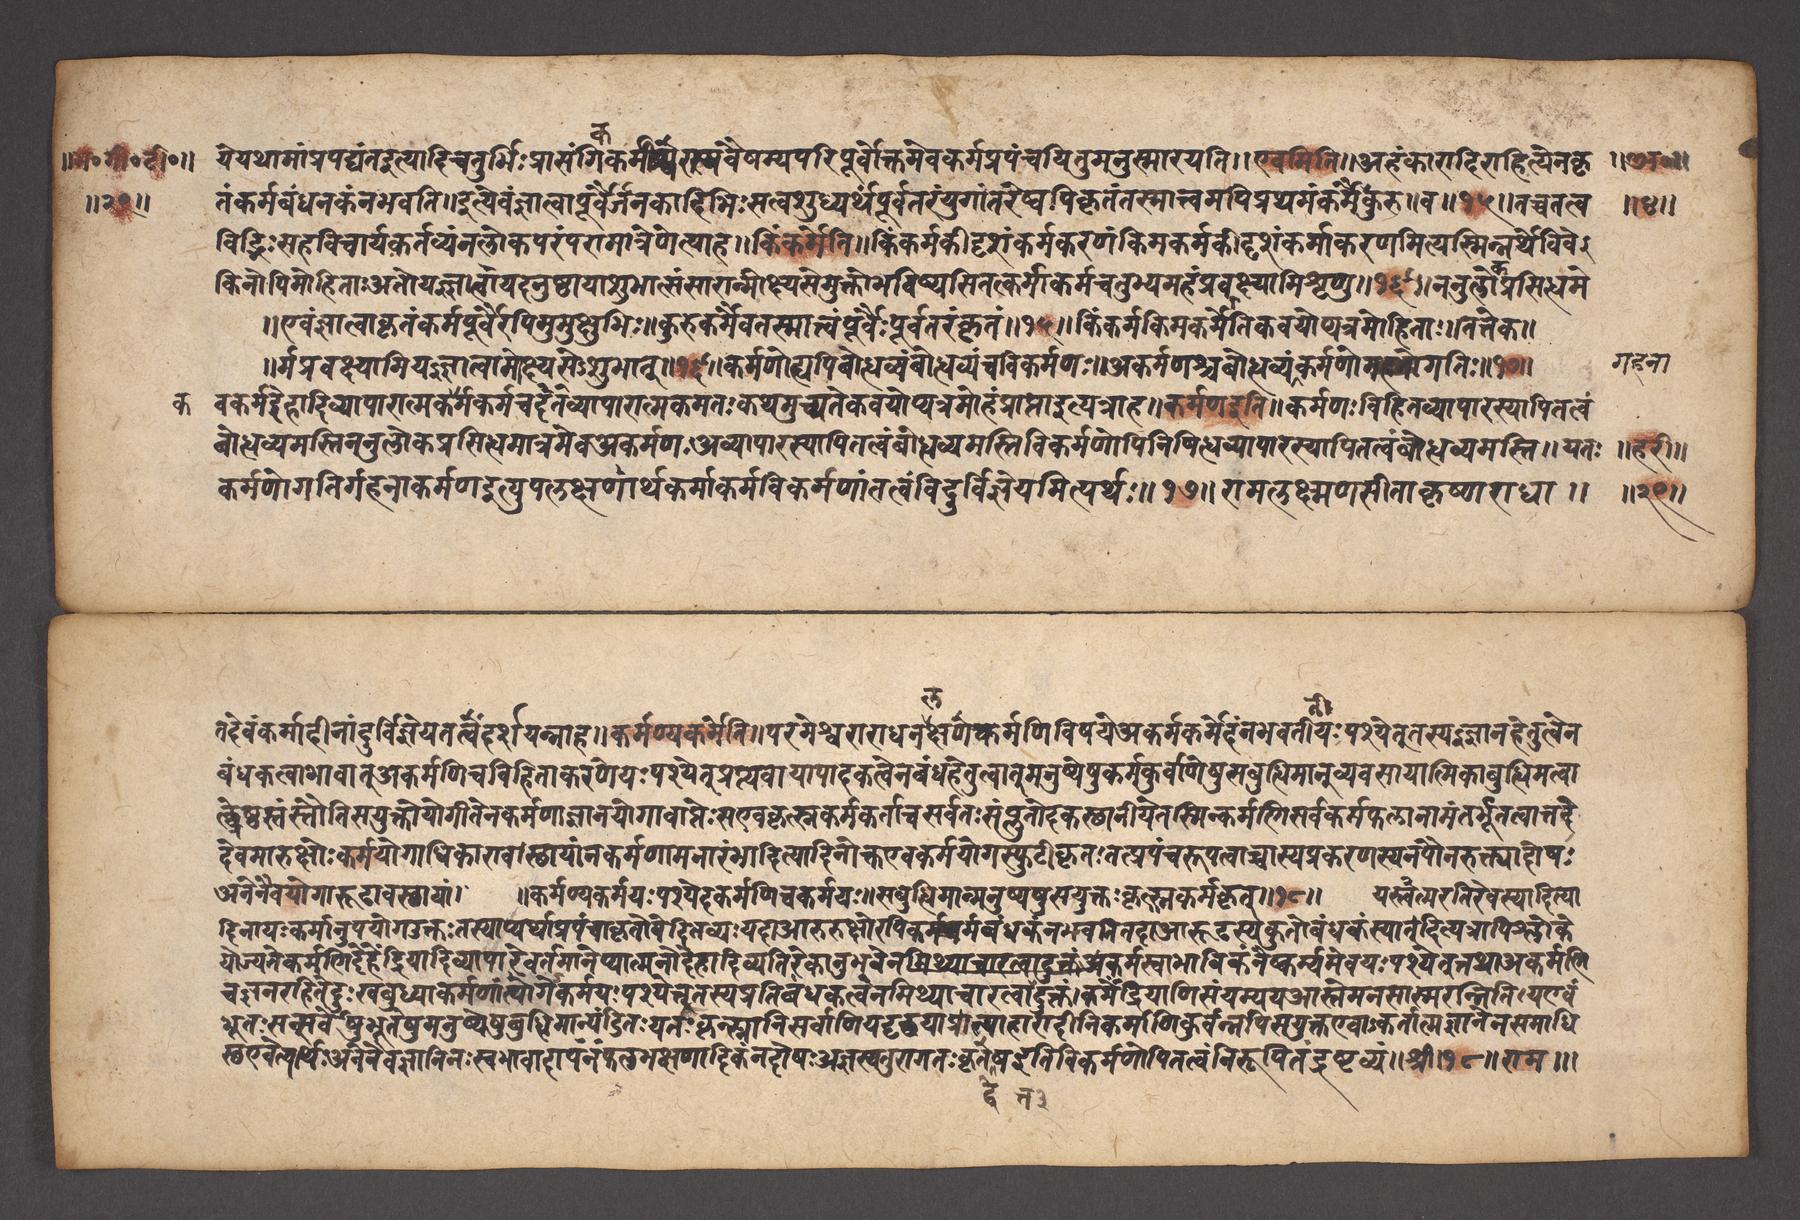 ॥भ॰गी॰टी॰॥ येयथामांप्रपद्यंतइत्यादिचतुर्भिःप्रासंगिकमीश्वरस्यवैषम्यंपरिपूर्वोक्तमेवकर्मप्रपंचयितुमनुस्मारयति॥एवमिति॥अहंकारादिराहित्येनकृ ॥अ॰॥
॥२०॥ तंकर्मबंधनकंनभवति॥इत्येवंज्ञात्वापूर्वैर्जनकादिभिःसत्वशुध्यर्थंपूर्वतरंयुगांतरेष्वपिकृतंतस्मात्त्वमपिप्रथमंकर्मैकुरु॥व॥१५॥तच्चतत्व ॥४॥
विद्भिःसहविचार्यकर्तव्यंनलोकपरंपरामात्रेणेत्याह॥किंकर्मेति॥किंकर्मकीदृशंकर्मकरणंकिमकर्मकीदृशंकर्माकरणमित्यस्मिन्नर्थेविवे
किनोपिमोहिताःअतोयज्ज्ञात्वायदनुष्ठायाशुभात्संसारान्मोक्ष्यसेमुक्तोभविष्यसितत्कर्माकर्मचतुभ्यमहंप्रवक्ष्यामिशृणु॥१६॥ननुलोकप्रसिद्धमे
॥एवंज्ञात्वाकृतंकर्मपूर्वैरपिमुमुक्षुभिः॥कुरुकर्मैवतस्मात्त्वंपूर्वैःपूर्वतरंकृतं॥१५॥किंकर्मकिमकर्मेतिकवयोप्यत्रमोहिताः॥तत्तेक॥
॥र्मप्रवक्ष्यामियज्ज्ञात्वामोक्ष्यसेऽशुभात्॥१६॥कर्मणोह्यपिबोद्धव्यंबोद्धव्यंचविकर्मणः॥अकर्मणश्चबोद्धव्यंकर्मणोगतिः॥१७॥ गहना
क वकर्मदेहादिव्यापारात्मकर्मकर्मचदैतंव्यापारात्मकमतःकथमुच्यतेकवयोप्यत्रमोहंप्राप्ताइत्यत्राह॥कर्मणइति॥कर्मणःविहितव्यापारस्यापितत्वं
बोद्धव्यमस्तिननुलोकप्रसिद्धमात्रमेवअकर्मण.अव्यापारस्यापितत्वंबोद्धव्यमस्तिविकर्मणोपिनिषिद्धव्यापारस्यापितत्वंबोद्धव्यमस्ति॥यतः ॥हरी॥
कर्मणोगतिर्गहनाकर्मणइत्युपलक्षणार्थंकर्माकर्मविकर्मणांतत्वंविदुर्विज्ञेयमित्यर्थः॥१७॥रामलक्ष्मणसीताकृष्णराधा॥ ॥२०॥
तदेवंकर्मादीनांदुर्विज्ञेयतत्वंदर्शयन्नाह॥कर्मण्यकर्मेति॥परमेश्वराराधनलक्षणेकर्मणिविषयेअकर्मकर्मेदंनभवतीतियःपश्येत्तस्यज्ञानहेतुत्वेन
बंधकत्वाभावात्अकर्मणिचविहिताकरणेयःपश्येत्प्रत्यवायापादकत्वेनबंधहेतुत्वात्मनुष्येषुकर्मकुर्वाणेषुसबुद्धिमान्व्यवसायात्मिकाबुद्धिमत्वा
च्छ्रेष्ठस्तंस्तौतिसयुक्तोयोगीतेनकर्मणाज्ञानयोगावाप्तेःसएवकृत्स्नकर्मकर्ताचसर्वतःसंप्लुतोदकस्थानीयेतस्मिन्कर्मणिसर्वकर्मफलानामंतर्भूतत्वात्तदे
देवमारुरुक्षोःकर्मयोगाधिकारावस्थायांनकर्मणामनारंभादित्यादिनोक्तएवकर्मयोगस्फुटीकृतःतत्प्रपंचरूपत्वाच्चास्यप्रकरणस्यनपौनरुक्त्यादोषः
अनेनैवयोगारूढावस्थायां। ॥कर्मण्यकर्मयःपश्येदकर्मणिचकर्मयः॥सबुद्धिमान्मनुष्येषुसयुक्तःकृत्स्नकर्मकृत्॥१८॥ यस्त्वात्मरतिरेवस्यादित्या
दिनायःकर्मानुपयोगउक्तःतस्याप्यर्थात्प्रपंचःकृतोवेदितव्यःयदाआरुरुक्षोरपिकर्मबंधकंनभवतितदाआरूढस्यकुतोबंधकंस्यात्इत्यत्रापिश्लोके
योज्यतेकर्मणिदेहेंद्रियादिव्यापारेवर्तमानेप्यात्मनोदेहादिव्यतिरेकानुभवेनअकर्मस्वाभाविकंनैष्कर्म्यमेवयःपश्येत्तथाअकर्मणि
चज्ञानरहितेदुःखबुध्याकर्मणांत्यागेकर्मयःपश्येत्तस्यप्रतिबंधकत्वेनमिथ्याचारत्वात्तदुक्तं।कर्मेंद्रियाणिसंयम्ययआस्तेमनसास्मरन्नितियएवं
भूतःसत्सर्वेषुभूतेषुमनुष्येषुबुद्धिमान्पंडितःयतःकृत्स्नानिसर्वाणियदृच्छयाप्राप्तान्याहारादीनिकर्माणिकुर्वन्नपिसयुक्तएवाकर्तात्मज्ञानेनसमाधि
स्थएवेत्यर्थःअनेनैवज्ञानिनःस्वभावादापन्नंकलंजभक्षणादिकंनदोषःअज्ञस्यतुरागतःकृतंदोषइतिविकर्मणोपितत्वंनिरूपितंद्रष्टव्यं॥श्री१८॥राम॥॥